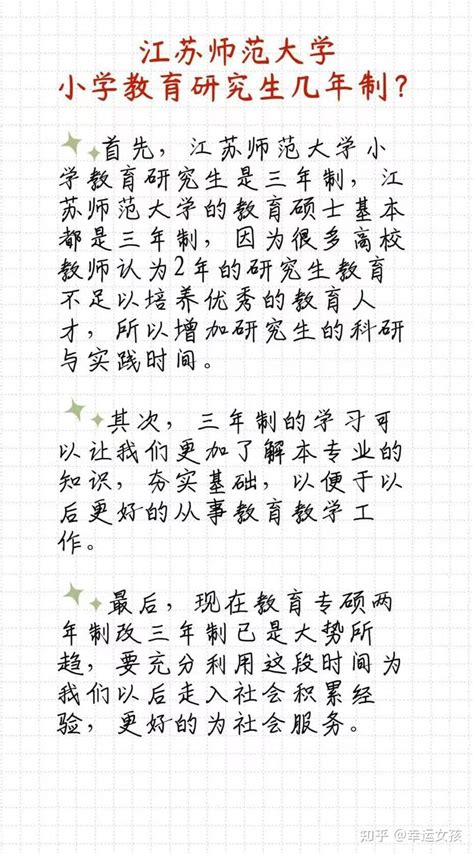 江苏师范大学
小学教育研究生几年制？
首先，江苏师范大学小
学教育研究生是三年制，江
苏师范大学的教育硕士基本
都是三年制，因为很多高校
教师认为2年的研究生教育
不足以培养优秀的教育人
才，所以增加研究生的科研
与实践时间。
其次，三年制的学习可
以让我们更加了解本专业的
知识，夯实基础，以便于以
后更好的从事教育教学工
作。
最后，现在教育专硕两
年制改三年制已是大势所
趋，要充分利用这段时间为
我们以后走入社会积累经
验，更好的为社会服务。
知乎 @幸运女孩